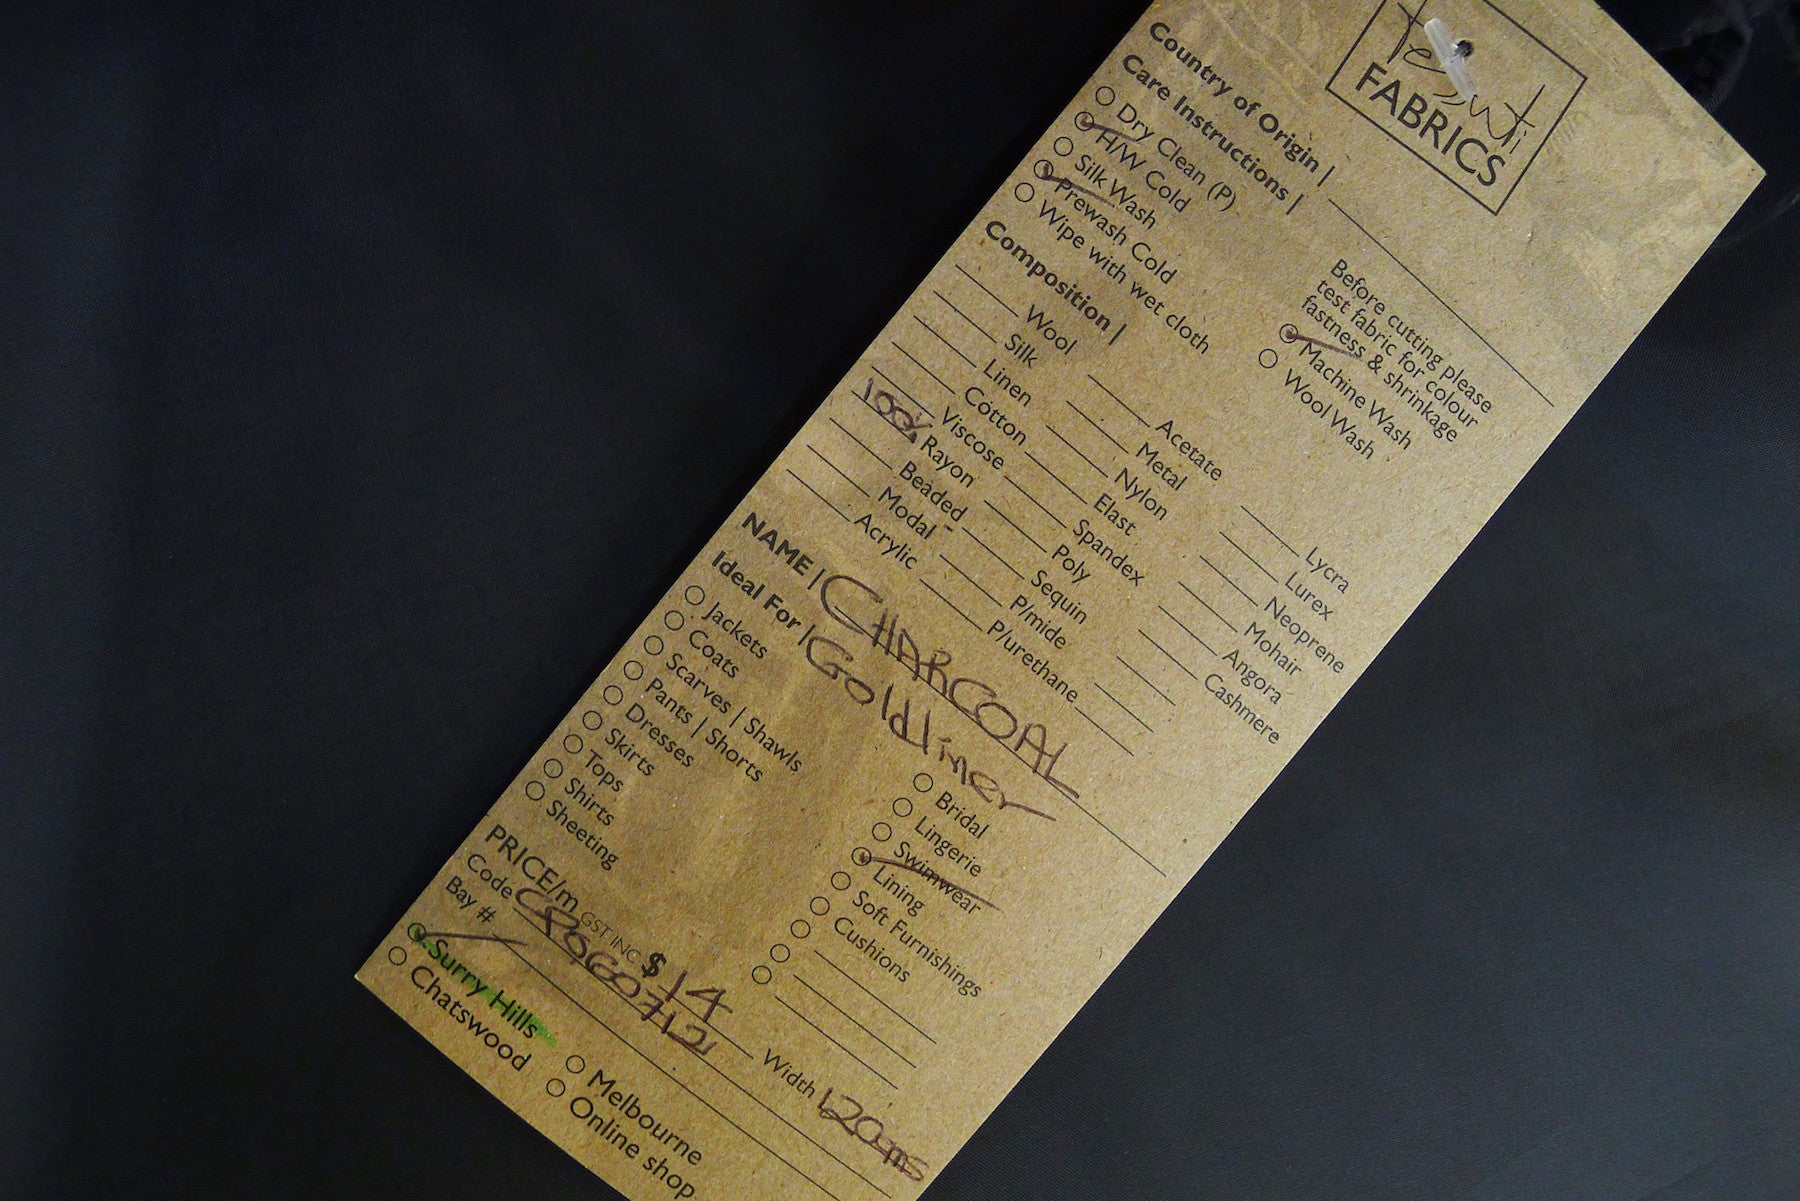 FABRICS
Country of Origin |
Care Instructions |
Dry Clean (P)
H/W Cold
Silk Wash
Prewash Cold
Wipe with wet cloth
Before cutting please
test fabric for colour
fastness & shrinkage
Machine Wash
Wool Wash
Composition |
Wool
Silk
Linen
Cotton
Viscose
100% Rayon
Beaded
Modal
Acrylic
Acetate
Metal
Nylon
Elast
Spandex
Poly
Sequin
P/mide
P/urethane
Lycra
Lurex
Neoprene
Mohair
Angora
Cashmere
NAME | CHARCOAL
Ideal For | Goldliner
Jackets
Coats
Scarves | Shawls
Pants | Shorts
Dresses
Skirts
Tops
Shirts
Sheeting
Bridal
Lingerie
Swimwear
Lining
Soft Furnishings
Cushions
PRICE/m GST INC $ 14
Code CPOGO712 Width 120cms
Bay #
Surry Hills
Chatswood
Melbourne
Online shop